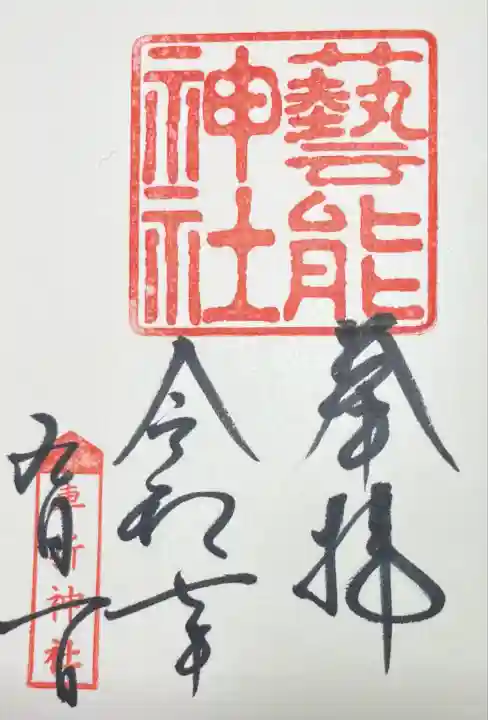 藝能
神社
奉拝
令和七年
九月一日
車折神社